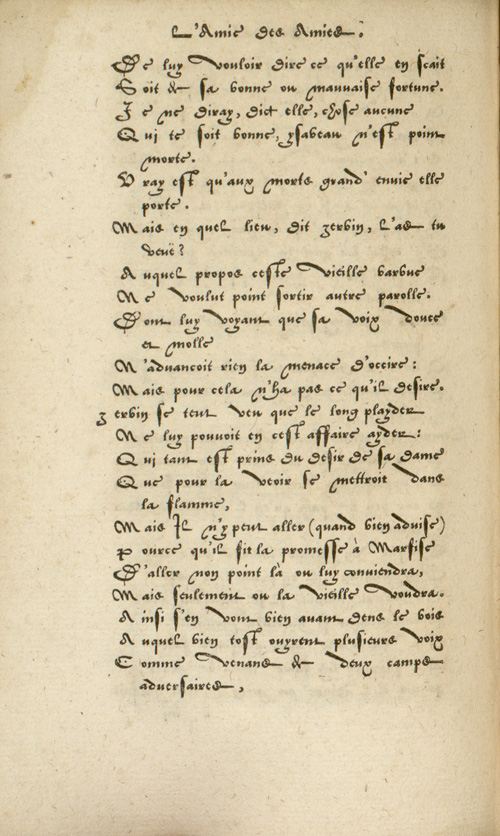 L'Amie des Amies.
De luy vouloir dire ce qu'elle en scait
Soit & sa bonne ou mauuaise fortune.
Je ne diray, dict elle, chose aucune
Qui te soit bonne, ysabeau n'est point
morte.
Vray est qu'aux morts grand' enuie elle
porte.
Mais en quel lieu, dit zerbin, l'as tu
veuë?
Auquel propos ceste vieille barbue
Ne voulut point sortir autre parolle.
Dont luy voyant que sa voix douce
et molle
N'aduancoit rien la menace d'occire:
Mais pour cela n'ha pas ce qu'il desire.
zerbin se teut veu que le long playder
Ne luy pouuoit en cest affaire ayder:
Qui tant est prins du desir de sa dame
Que pour la veoir se mettroit dans
la flamme,
Mais Il n'y peut aller (quand bien aduise)
Pource qu'il fit la promesse à Marfise
D'aller non point là ou luy conuiendra,
Mais seulement ou la vieille voudra.
Ainsi s'en vont bien auant dens le bois
Auquel bien tost ouyrent plusieurs voix
Comme venans & deux camps
aduersaires,